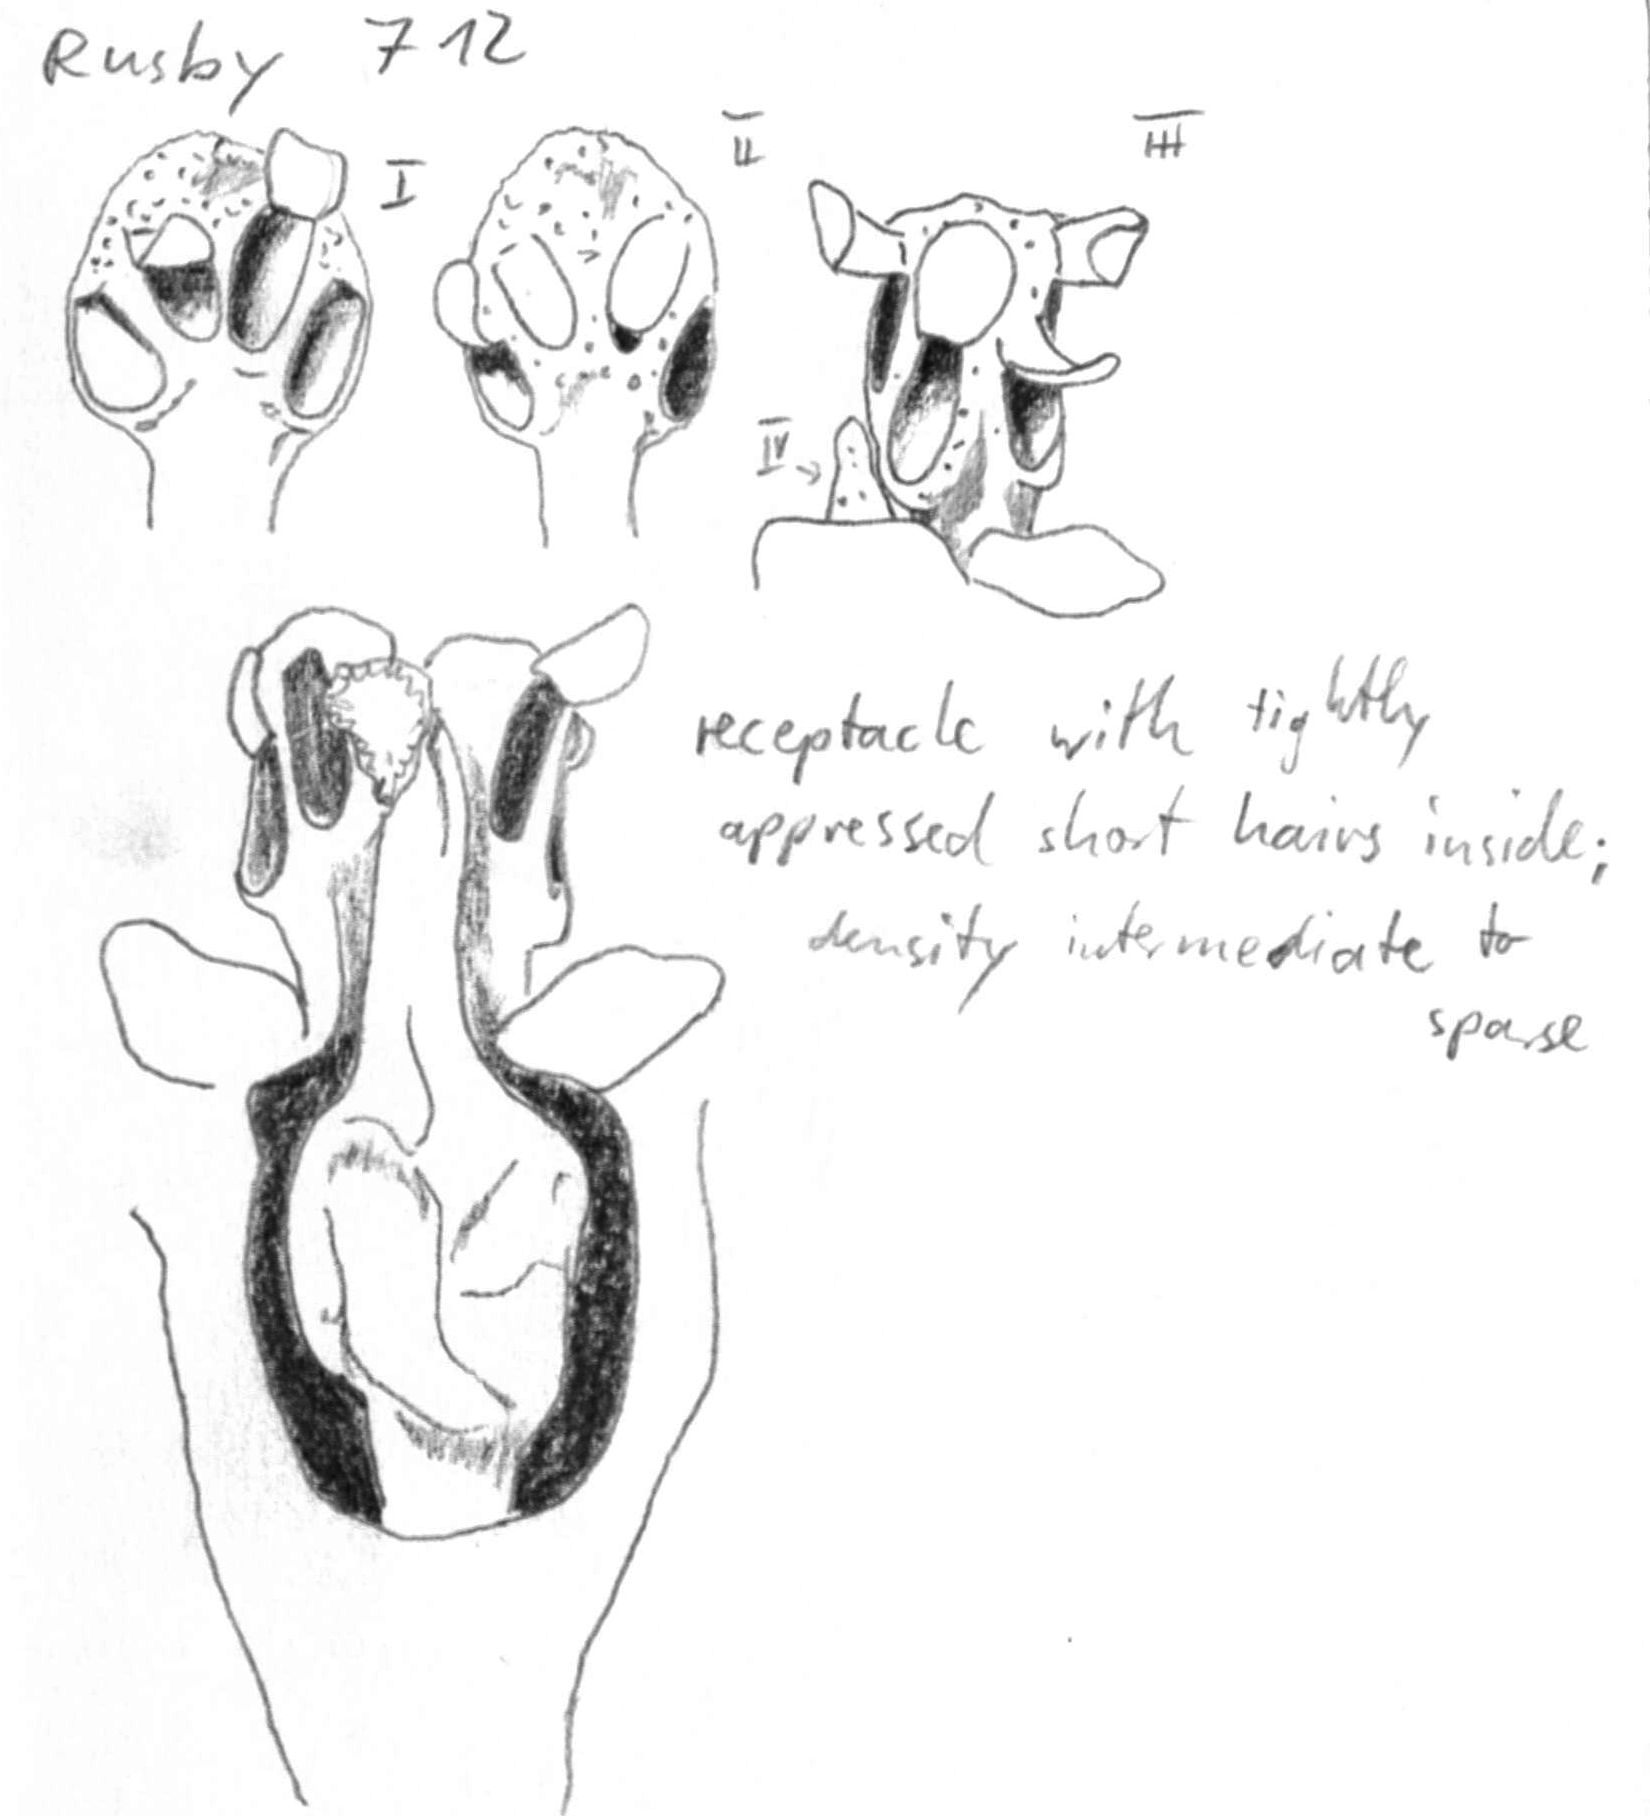 Rusby 712
I
II
III
IV
receptacle with tightly
appressed short hairs inside;
density intermediate to
sparse